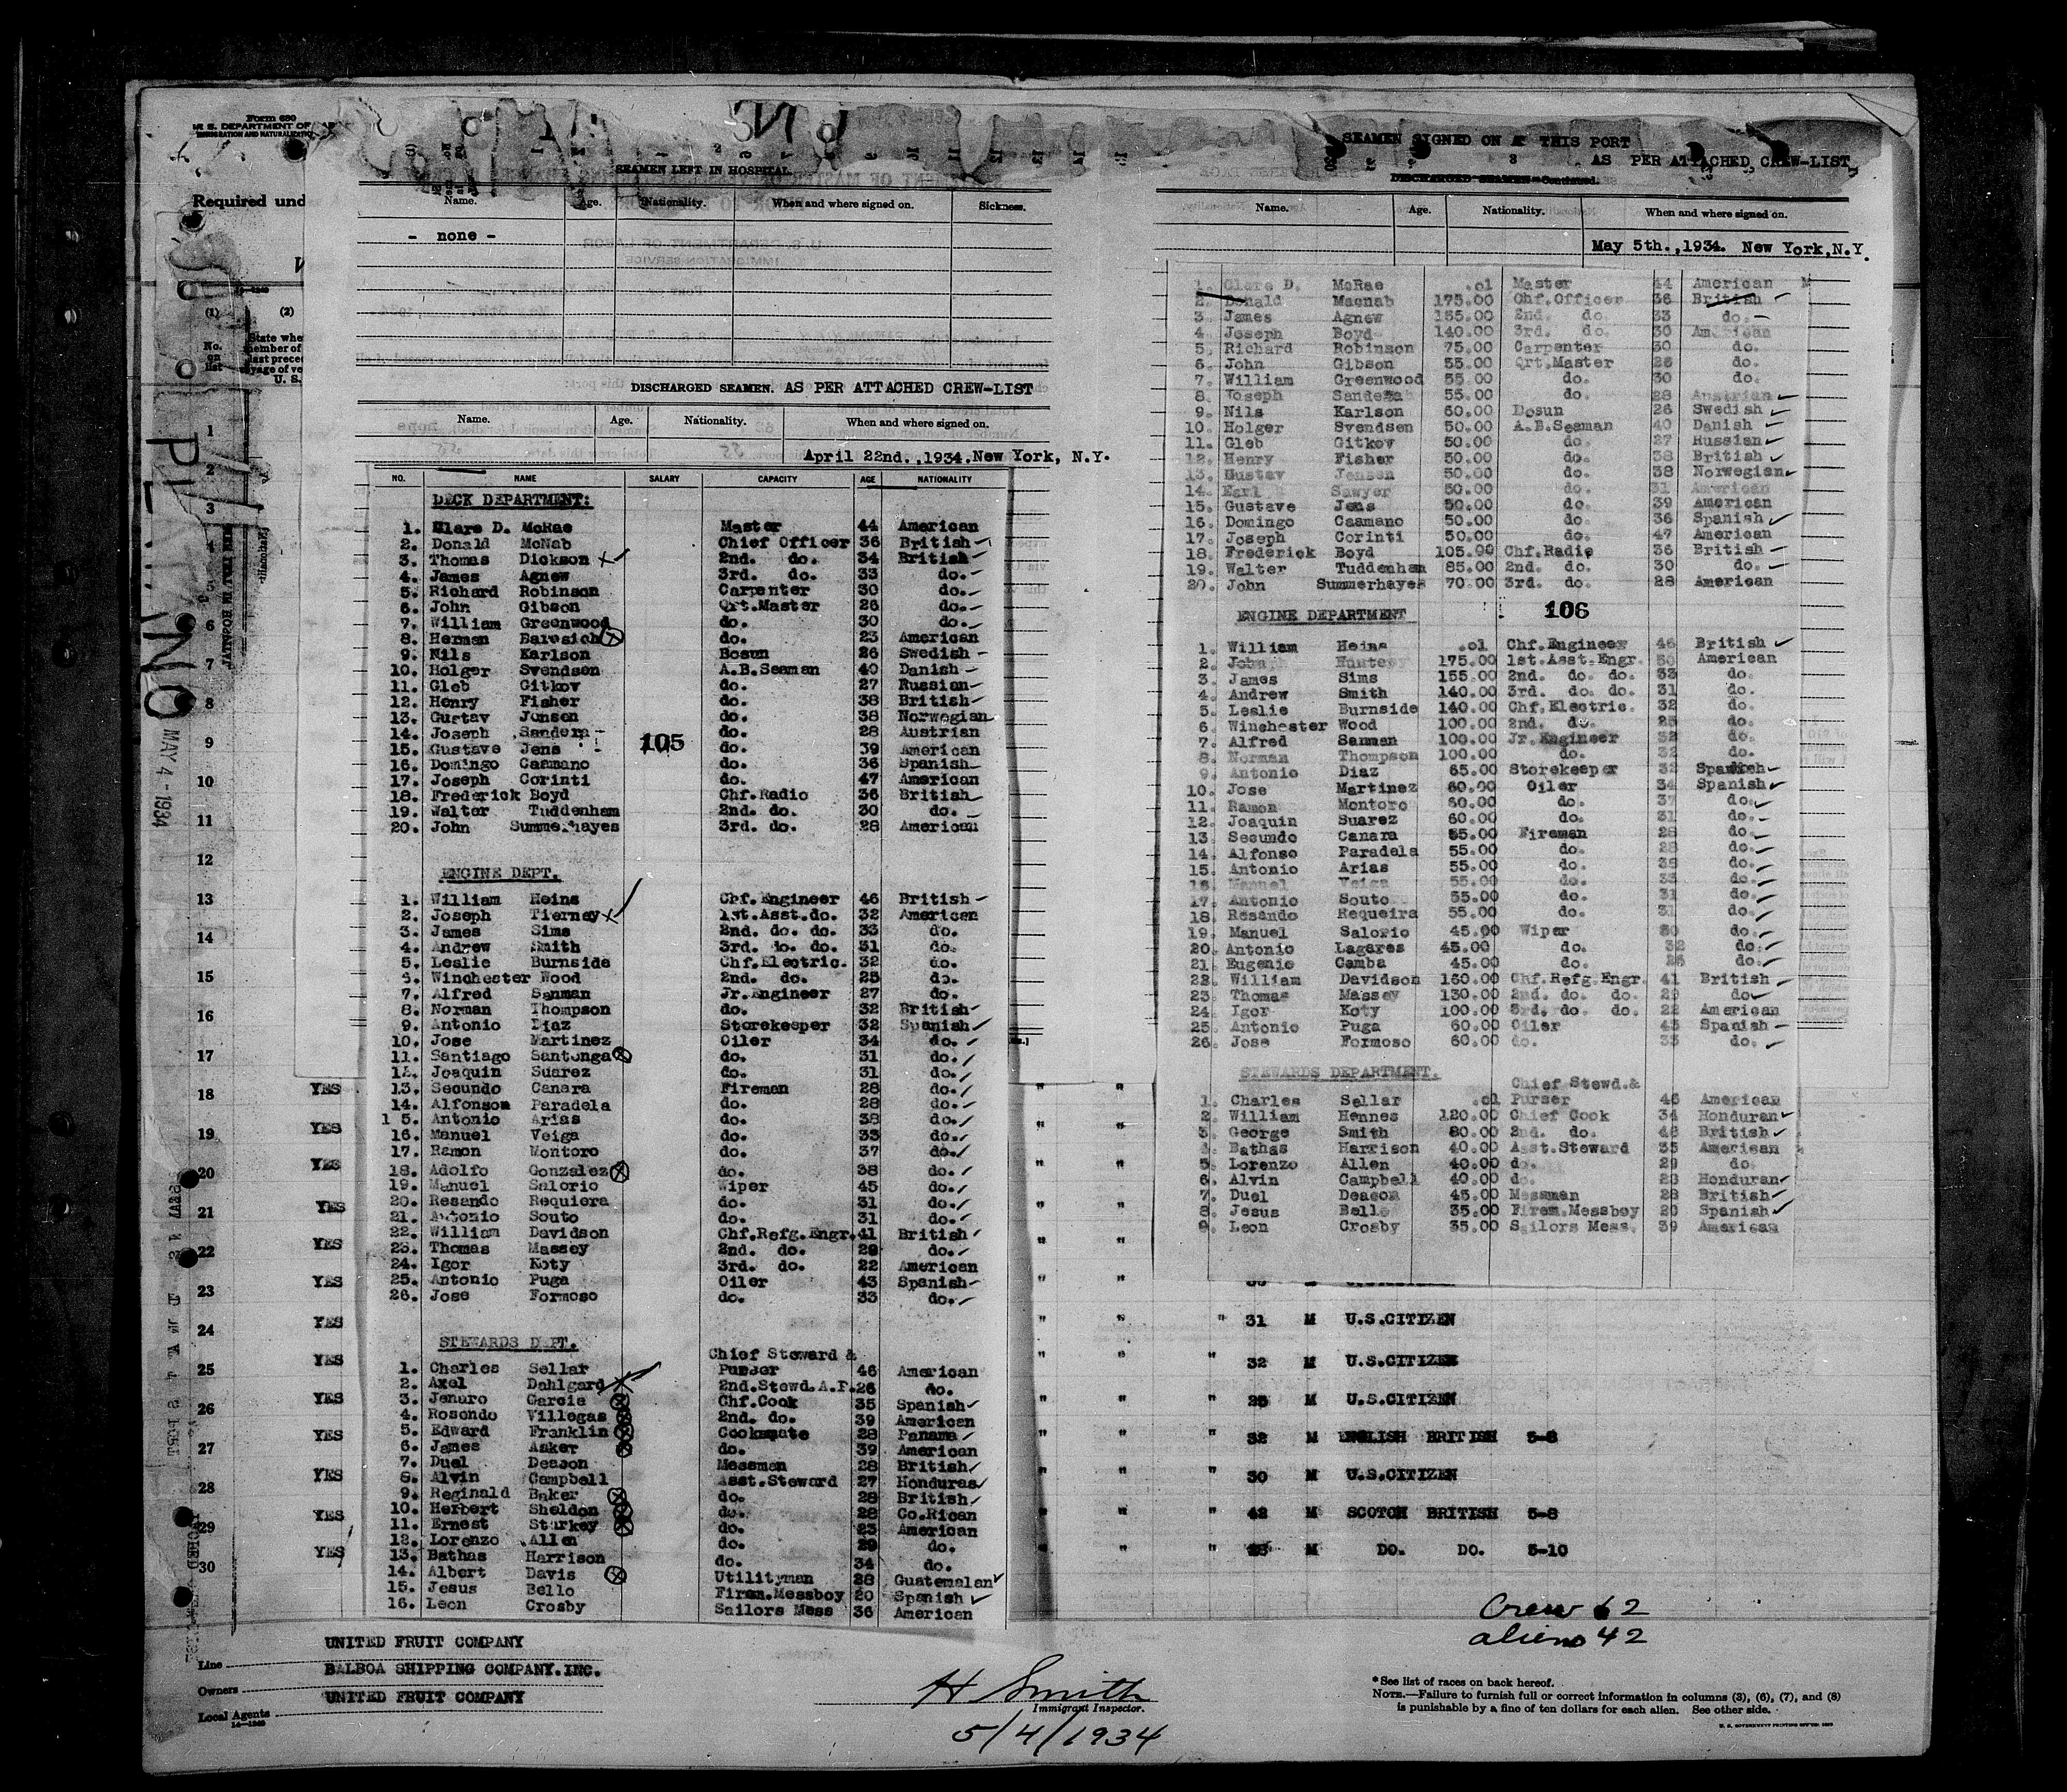 Form 680
U. S. DEPARTMENT OF
IMMIGRATION AND NATURALIZATION
Required und
(1) (2)
No. on list
State whe
member of
last prece
voyage of ve
U. S.
1
2
3
4
6
7
8
9
10
11
12
13
14
15
16
17
18 YES
19 YES
20 YES
21 YES
22 YES
23 YES
24 YES
25 YES
26 YES
27 YES
28 YES
29 YES
30 YES
MAY 4 - 1934
SEAMEN LEFT IN HOSPITAL.
Name. Age. Nationality. When and where signed on. Sickness.
- none -
DISCHARGED SEAMEN. AS PER ATTACHED CREW-LIST
Name. Age. Nationality. When and where signed on.
April 22nd.,1934.New York, N.Y.
NO. NAME SALARY CAPACITY AGE NATIONALITY
DECK DEPARTMENT:
1. Clare D. McRae Master 44 American
2. Donald McNab Chief Officer 36 British
3. Thomas Dickson 2nd. do. 34 British
4. James Agnew 3rd. do. 33 do.
5. Richard Robinson Carpenter 30 do.
6. John Gibson Qrt.Master 26 do.
7. William Greenwood do. 30 do.
8. Herman Baresich do. 23 American
9. Nils Karlson Bosun 26 Swedish
10. Holger Svendsen A.B.Seaman 40 Danish
11. Gleb Gitkov do. 27 Russian
12. Henry Fisher do. 38 British
13. Gustav Jensen do. 38 Norwegian
14. Joseph Sandera do. 28 Austrian
15. Gustave Jens 105 do. 39 American
16. Domingo Caamano do. 36 Spanish
17. Joseph Corinti do. 47 American
18. Frederick Boyd Chf.Radio 36 British
19. Walter Tuddenham 2nd. do. 30 do.
20. John Summerhayes 3rd. do. 28 American
ENGINE DEPT.
1. William Heins Chf.Engineer 46 British
2. Joseph Tierney 1st.Asst.do. 32 American
3. James Sims 2nd. do. do. 33 do.
4. Andrew Smith 3rd. do. do. 31 do.
5. Leslie Burnside Chf.Electric. 32 do.
6. Winchester Wood 2nd. do. 25 do.
7. Alfred Sanman Jr.Engineer 27 do.
8. Norman Thompson do. 32 British
9. Antonio Diaz Storekeeper 32 Spanish
10. Jose Martinez Oiler 34 do.
11. Santiago Santonga do. 31 do.
12. Joaquin Suarez do. 31 do.
13. Secundo Canara Fireman 28 do.
14. Alfonson Paradela do. 28 do.
1 5. Antonio Arias do. 38 do.
16. Manuel Veiga do. 33 do.
17. Ramon Montoro do. 37 do.
18. Adolfo Gonzalez do. 38 do.
19. Manuel Salorio Wiper 45 do.
20. Resando Requiera do. 31 do.
21. Antonio Souto do. 31 do.
22. William Davidson Chf.Refg.Engr. 41 British
23. Thomas Massey 2nd. do. 28 do.
24. Igor Koty 3rd. do. 22 American
25. Antonio Puga Oiler 43 Spanish
26. Jose Formoso do. 33 do.
STEWARDS DEPT.
Chief Steward &
1. Charles Sellar Purser 46 American
2. Axel Dahlgard 2nd.Stewd.A.P. 26 do.
3. Jenaro Garcia Chf.Cook 35 Spanish
4. Rosondo Villegas 2nd. do. 39 American
5. Edward Franklin Cooksmate 28 Panama
6. James Asker do. 39 American
7. Duel Deacon Messman 28 British
8. Alvin Campbell Asst.Steward 27 Honduras
9. Reginald Baker do. 28 British
10. Herbert Sheldon do. 28 Co.Rican
11. Ernest Starkey do. 23 American
12. Lorenzo Allen do. 29 do.
13. Bathas Harrison do. 34 do.
14. Albert Davis Utilityman 28 Guatemalan
15. Jesus Bello Firem.Messboy 20 Spanish
16. Leon Crosby Sailors Mess 36 American
SEAMEN SIGNED ON THIS PORT
AS PER ATTACHED CREW-LIST
DISCHARGED SEAMEN—Continued.
Name. Age. Nationality. When and where signed on.
May 5th.,1934. New York,N.Y.
1. Clare D. McRae .01 Master 44 American
2. Donald Macnab 175.00 Chf.Officer 36 British
3. James Agnew 155.00 2nd. do. 33 do.
4. Joseph Boyd 140.00 3rd. do. 30 American
5. Richard Robinson 75.00 Carpenter 30 do.
6. John Gibson 55.00 Qrt.Master 26 do.
7. William Greenwood 55.00 do. 30 do.
8. Joseph Sandera 55.00 do. 28 Austrian
9. Nils Karlson 60.00 Bosun 26 Swedish
10. Holger Svendsen 50.00 A.B.Seaman 40 Danish
11. Gleb Gitkov 50.00 do. 27 Russian
12. Henry Fisher 50.00 do. 38 British
13. Gustav Jensen 50.00 do. 38 Norwegian
14. Earl Sawyer 50.00 do. 31 American
15. Gustave Jens 50.00 do. 39 American
16. Domingo Caamano 50.00 do. 36 Spanish
17. Joseph Corinti 50.00 do. 47 American
18. Frederick Boyd 105.00 Chf.Radio 36 British
19. Walter Tuddenham 85.00 2nd. do. 30 do.
20. John Summerhayes 70.00 3rd. do. 28 American
ENGINE DEPARTMENT 106
1. William Heins .01 Chf.Engineer 46 British
2. John Hunter 175.00 1st.Asst.Engr. 50 American
3. James Sims 155.00 2nd. do. do. 33 do.
4. Andrew Smith 140.00 3rd. do. do. 31 do.
5. Leslie Burnside 140.00 Chf.Electric. 32 do.
6. Winchester Wood 100.00 2nd. do. 25 do.
7. Alfred Sanman 100.00 Jr.Engineer 32 do.
8. Norman Thompson 100.00 do. 32 do.
9. Antonio Diaz 65.00 Storekeeper 32 Spanish
10. Jose Martinez 60.00 Oiler 34 Spanish
11. Ramon Montoro 60.00 do. 37 do.
12. Joaquin Suarez 60.00 do. 31 do.
13. Secundo Canara 55.00 Fireman 28 do.
14. Alfonso Paradela 55.00 do. 28 do.
15. Antonio Arias 55.00 do. 38 do.
16. Manuel Veiga 55.00 do. 33 do.
17. Antonio Souto 55.00 do. 31 do.
18. Resando Requeira 55.00 do. 31 do.
19. Manuel Salorio 45.00 Wiper 50 do.
20. Antonio Lagares 45.00 do. 32 do.
21. Eugenio Camba 45.00 do. 26 do.
22. William Davidson 160.00 Chf.Refg.Engr. 41 British
23. Thomas Massey 130.00 2nd. do. do. 29 do
24. Igor Koty 100.00 3rd. do. do. 22 American
25. Antonio Puga 60.00 Oiler 43 Spanish
26. Jose Formoso 60.00 do. 33 do.
STEWARDS DEPARTMENT.
Chief Stewd.&
1. Charles Sellar .01 Purser 46 American
2. William Hennes 120.00 Chief Cook 34 Honduran
3. George Smith 80.00 2nd. do. 48 British
4. Bathas Harrison 40.00 Asst.Steward 35 American
5. Lorenzo Allen 40.00 do. 29 do
6. Alvin Campbell 40.00 do. 28 Honduran
7. Duel Deacon 45.00 Messman 28 British
8. Jesus Bello 35.00 Firem.Messboy 20 Spanish
9. Leon Crosby 35.00 Sailors Mess. 39 American
" " " 31 M U.S.CITIZEN
" " " 32 M U.S.CITIZEN
" " " 25 M U.S.CITIZEN
" " " 32 M ENGLISH BRITISH 5-8
" " " 30 M U.S.CITIZEN
" " " 42 M SCOTCH BRITISH 5-8
" " " M DO. DO. 5-10
Crew 62
aliens 42
UNITED FRUIT COMPANY
Line
BALBOA SHIPPING COMPANY.INC.
Owners
UNITED FRUIT COMPANY
Local Agents
H Smith
Immigrant Inspector.
5/4/1934
*See list of races on back hereof.
NOTE.—Failure to furnish full or correct information in columns (3), (6), (7), and (8)
is punishable by a fine of ten dollars for each alien. See other side.